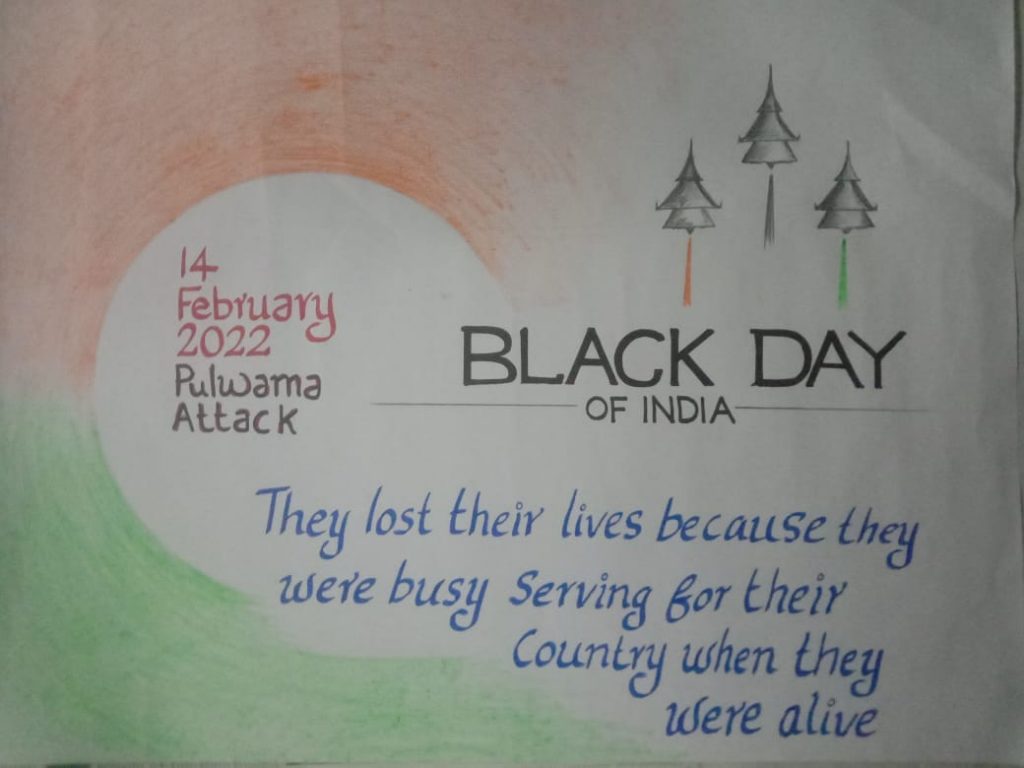 14
February
2022
Pulwama
Attack
BLACK DAY
OF INDIA
They lost their lives because they
were busy Serving for their
Country when they
were alive